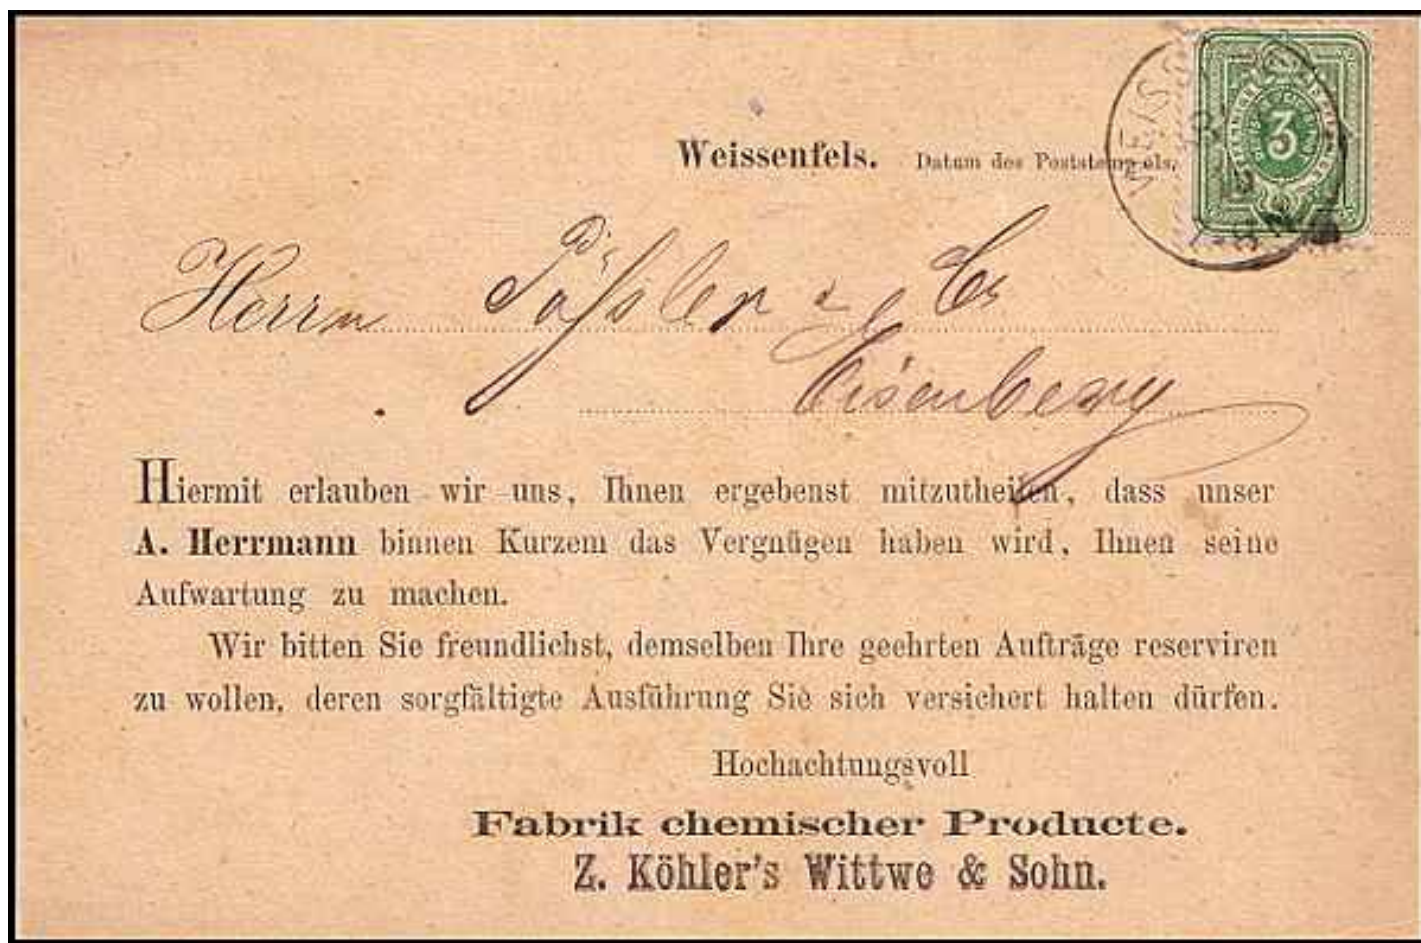 3
Weissenfels. Datum des Poststempels.
Herrn Päßler & Co
Eisenberg
Hiermit erlauben wir uns, Ihnen ergebenst mitzutheilen, dass unser
A. Herrmann binnen Kurzem das Vergnügen haben wird, Ihnen seine
Aufwartung zu machen.
Wir bitten Sie freundlichst, demselben Ihre geehrten Aufträge reserviren
zu wollen, deren sorgfältigte Ausführung Sie sich versichert halten dürfen.
Hochachtungsvoll
Fabrik chemischer Producte.
Z. Köhler's Wittwe & Sohn.